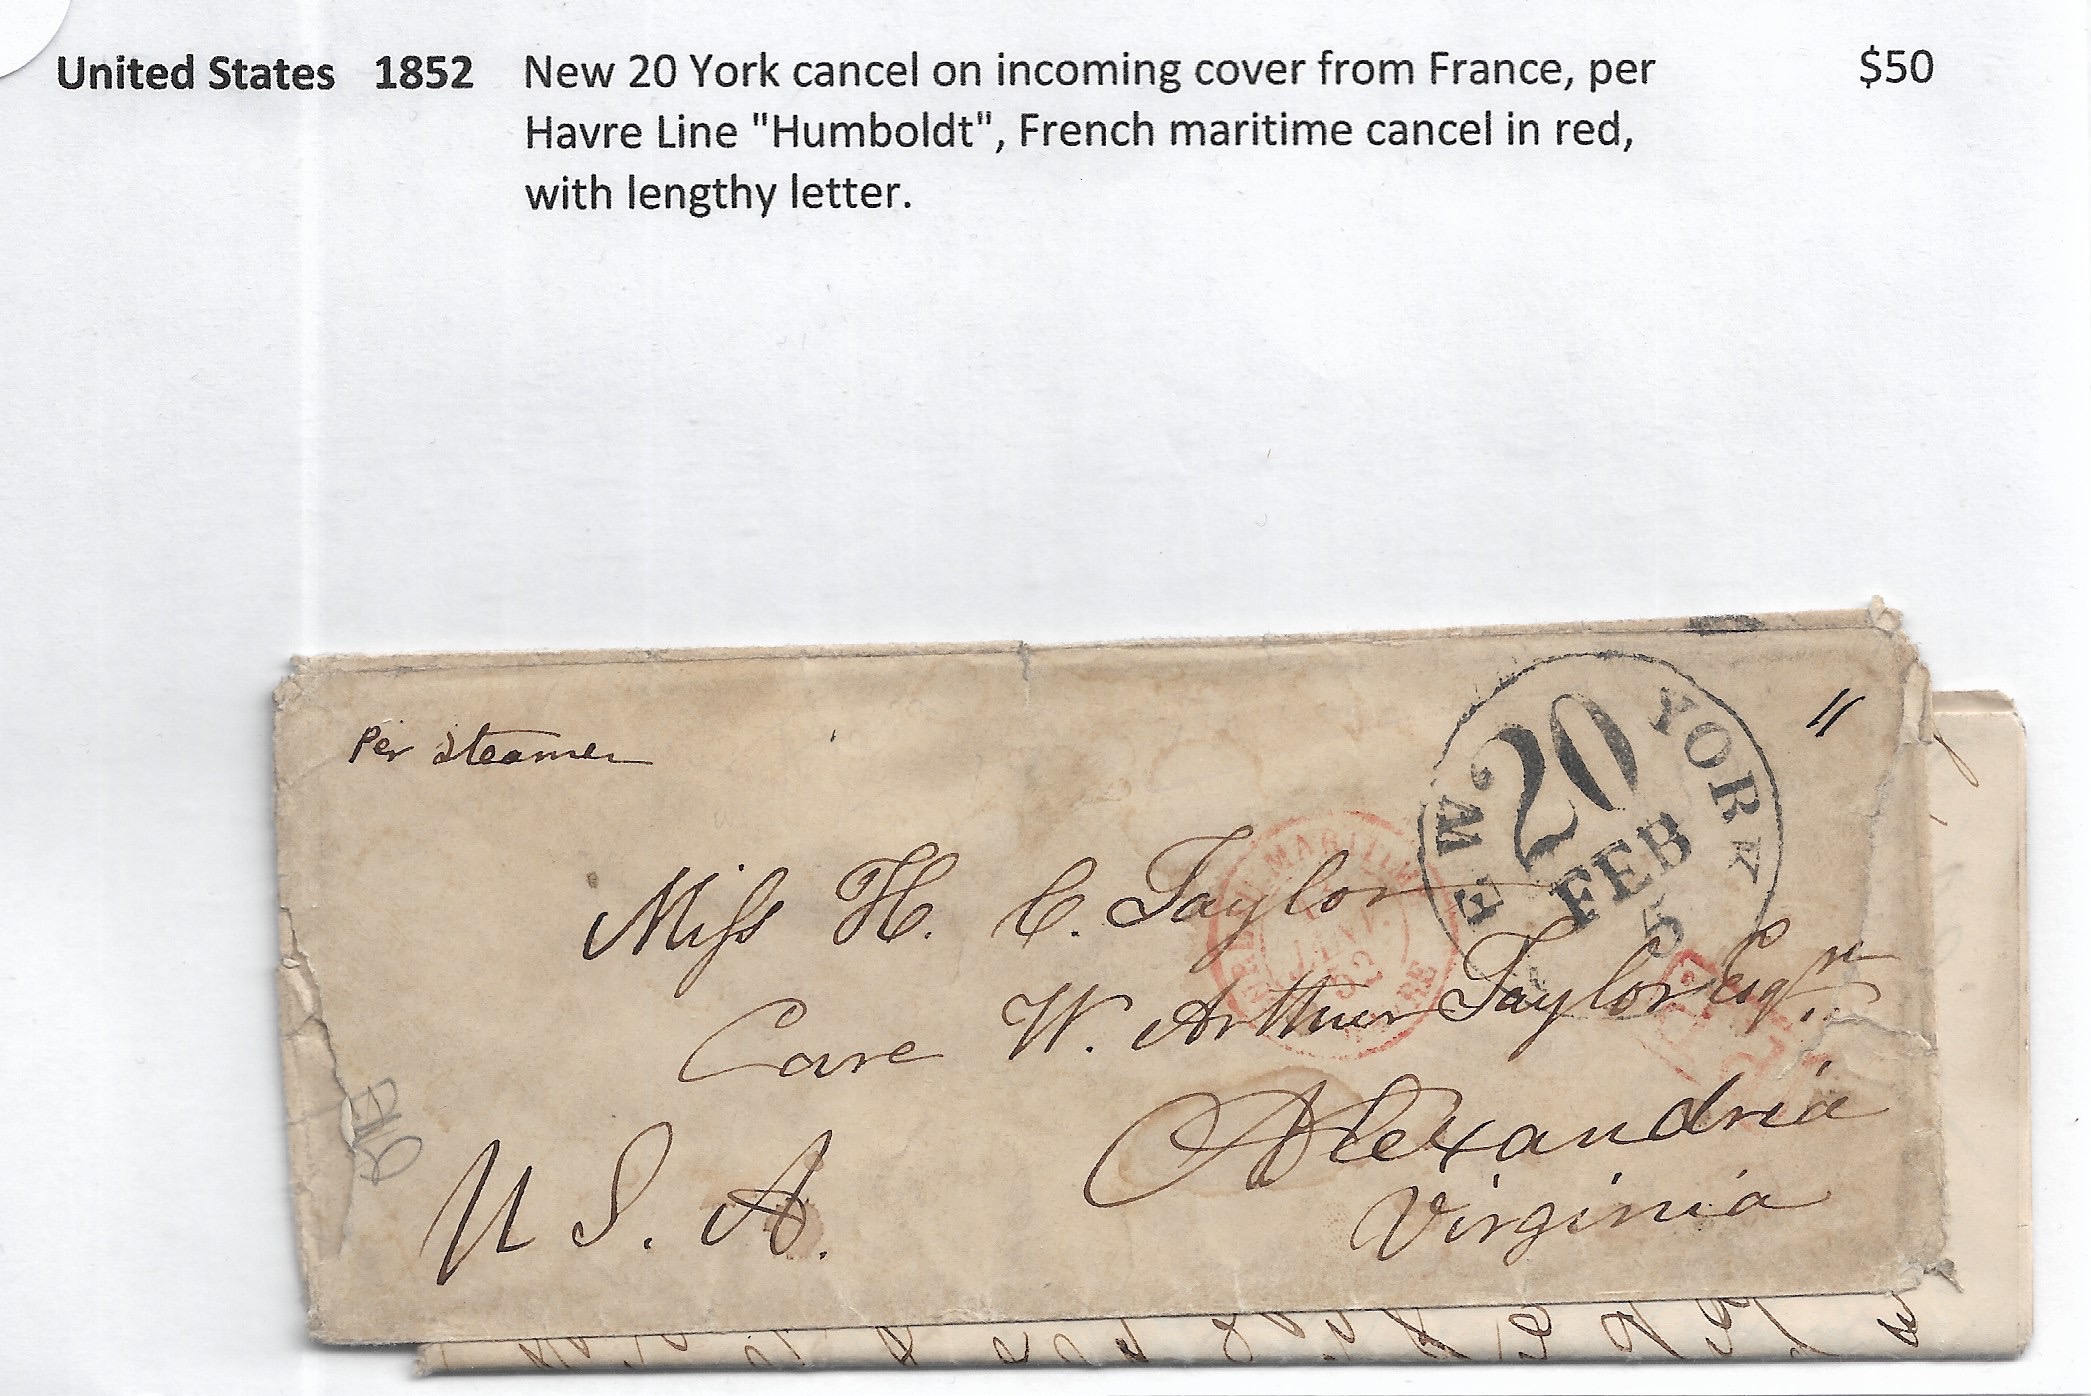 United States 1852 New 20 York cancel on incoming cover from France, per $50
Havre Line "Humboldt", French maritime cancel in red,
with lengthy letter.
Per Steamer
NEW YORK
20
FEB
5
Miss H. C. Taylor
Care W. Arthur Taylor Esqr.
Alexandria
Virginia
U S. A.